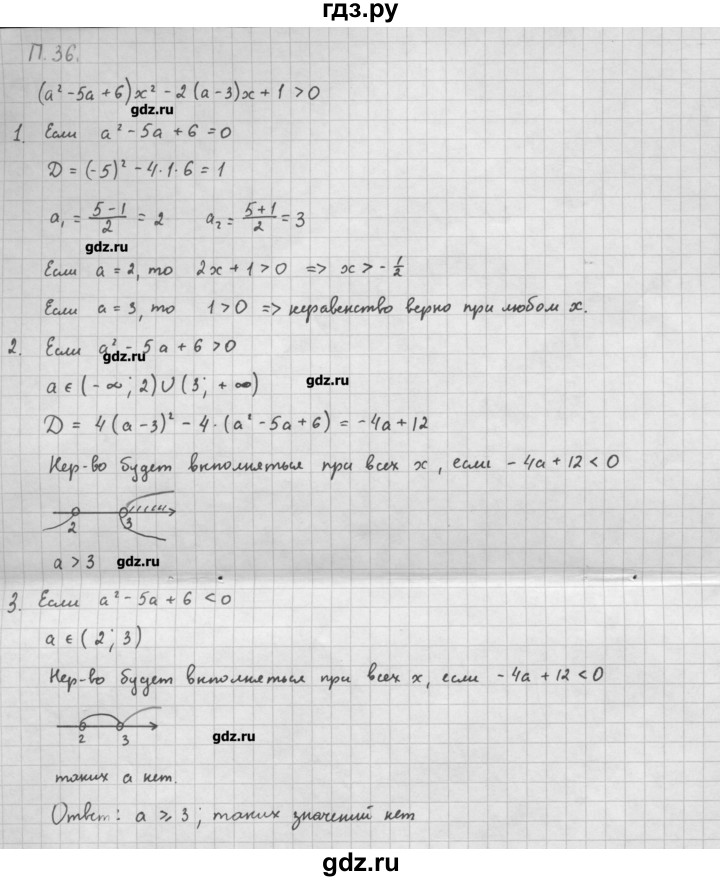 гдз.ру
П.36.
(a² - 5a + 6)x² - 2(a - 3)x + 1 > 0
gdz.ru
1. Если a² - 5a + 6 = 0
D = (-5)² - 4·1·6 = 1
a₁ = (5-1)/2 = 2 a₂ = (5+1)/2 = 3
gdz.ru
Если a = 2, то 2x + 1 > 0 => x > -1/2
Если a = 3, то 1 > 0 => неравенство верно при любом x.
2. Если a² - 5a + 6 > 0
gdz.ru
a ∈ (-∞; 2) ∪ (3; +∞)
gdz.ru
D = 4(a - 3)² - 4·(a² - 5a + 6) = -4a + 12
Нер-во будет выполняться при всех x, если -4a + 12 < 0
2 3
a > 3
gdz.ru
3. Если a² - 5a + 6 < 0
a ∈ (2; 3)
Нер-во будет выполняться при всех x, если -4a + 12 < 0
2 3
gdz.ru
таких a нет.
Ответ: a ⩾ 3; таких значений нет
gdz.ru